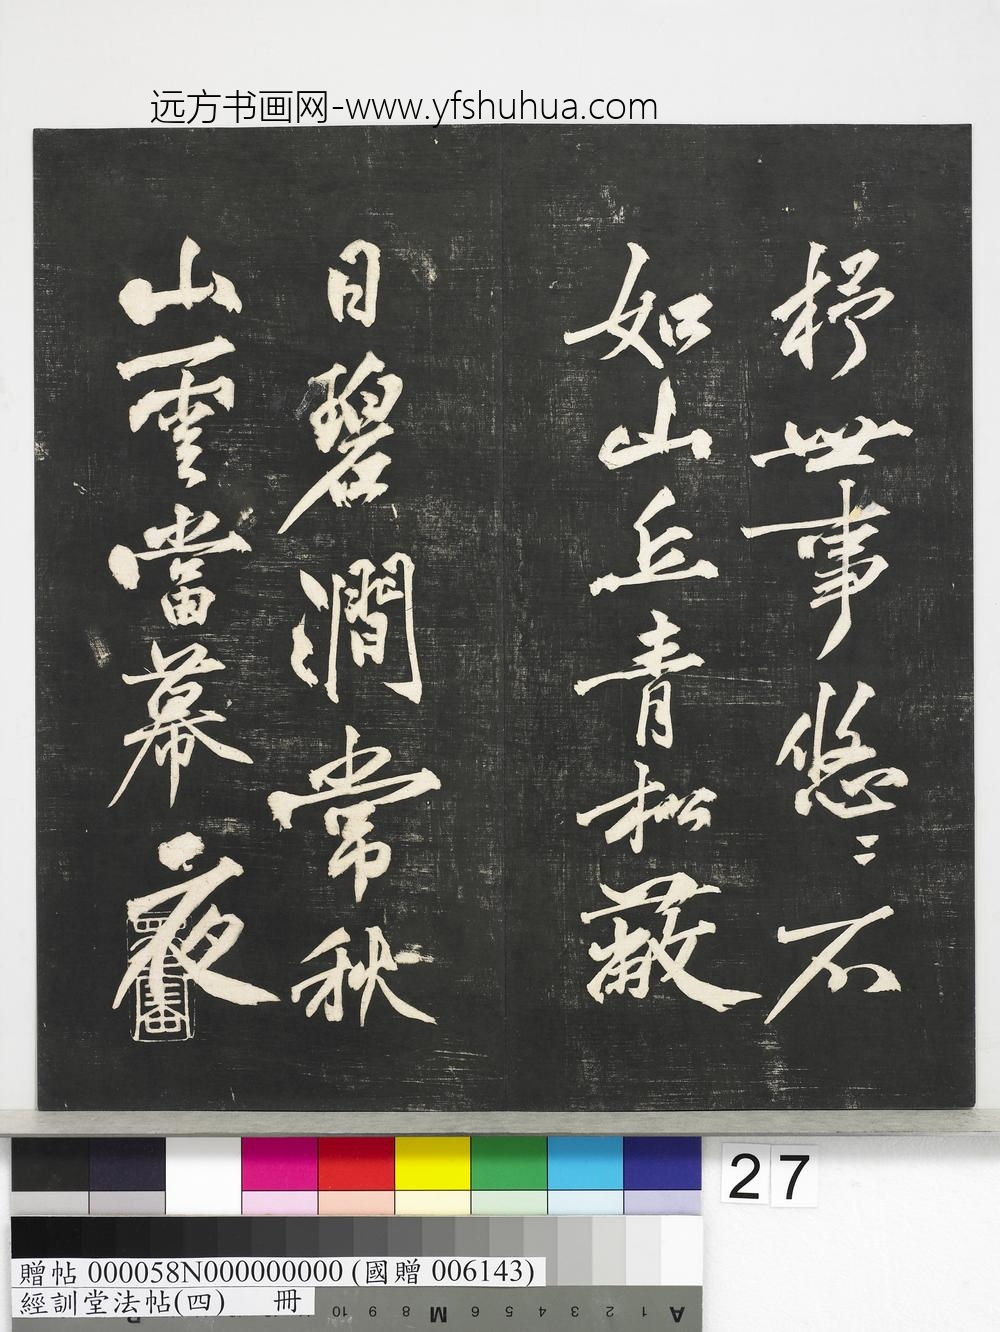 远方书画网-www.yfshuhua.com
杼世事悠〻不
如山丘青松蔽
日碧澗常秋
山雲當幕夜
27
贈帖 000058N000000000 (國贈 006143)
經訓堂法帖(四) 冊